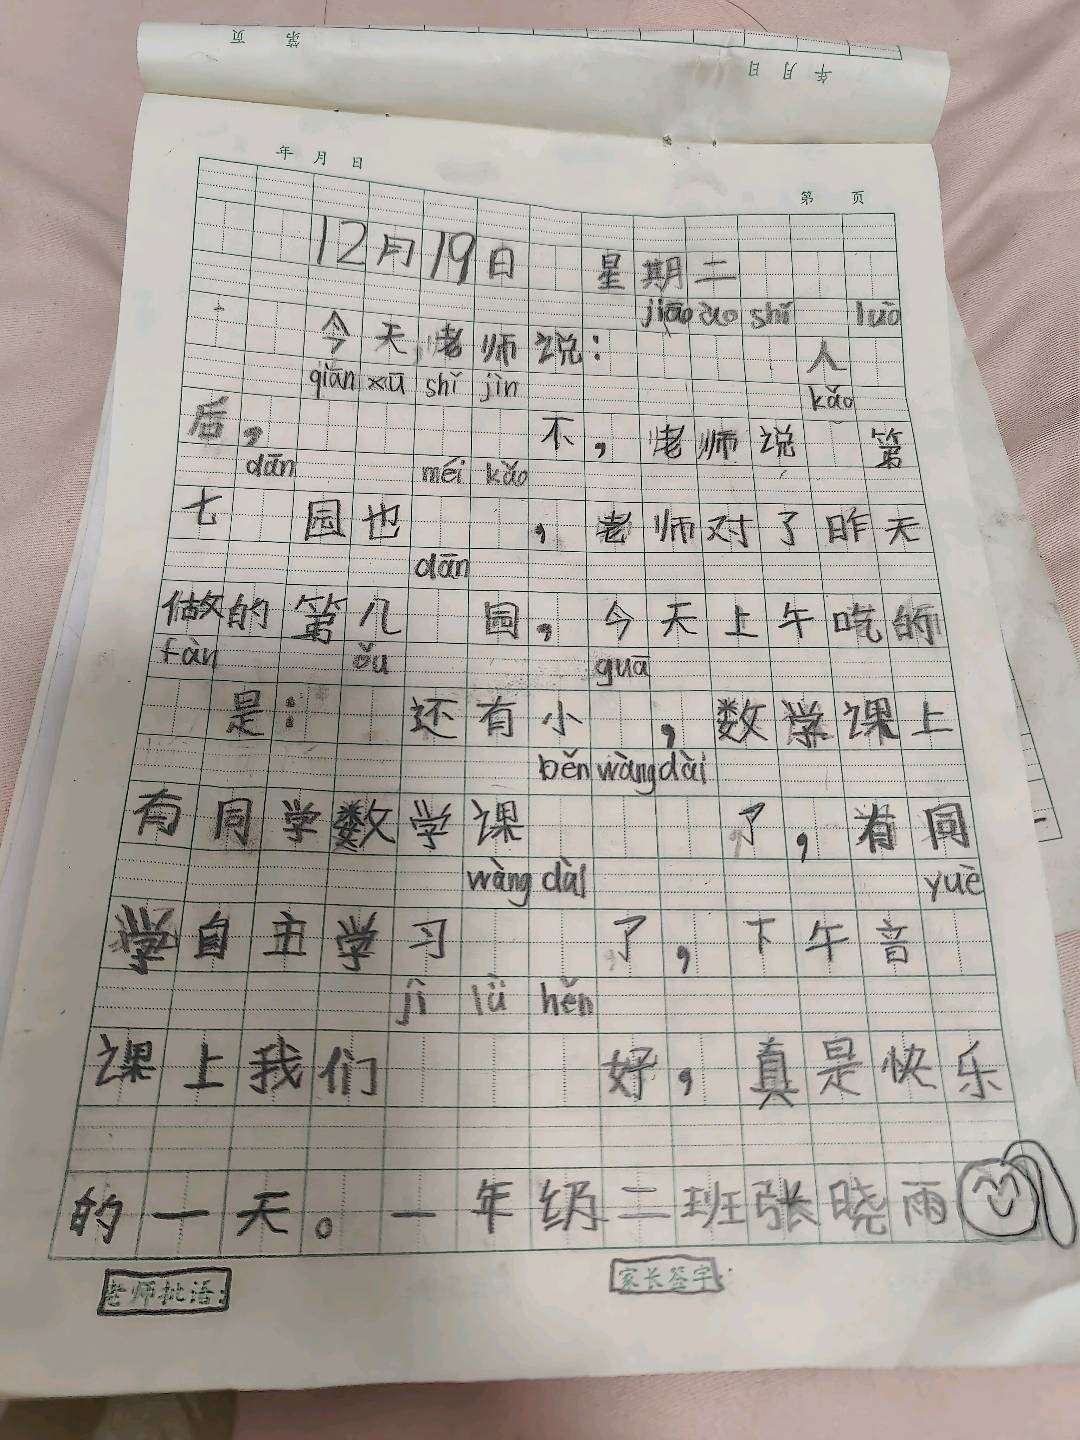 第 页
年 月 日
年 月 日
第 页
12月19日 星期二
jiāo ào shǐ luò
今天,老师说: 人
qiān xū shǐ jìn kǎo
后, 不,老师说 第
dān méi kǎo
七 园也 ,老师对了昨天
dān
做的第几 园,今天上午吃的
fàn ǒu guā
是: 还有小 ,数学课上
běn wàng dài
有同学数学课 了,有同
wàng dài yuè
学自主学习 了,下午音
jì lǜ hěn
课上我们 好,真是快乐
的一天。一年级二班张晓雨
老师批语: 家长签字: